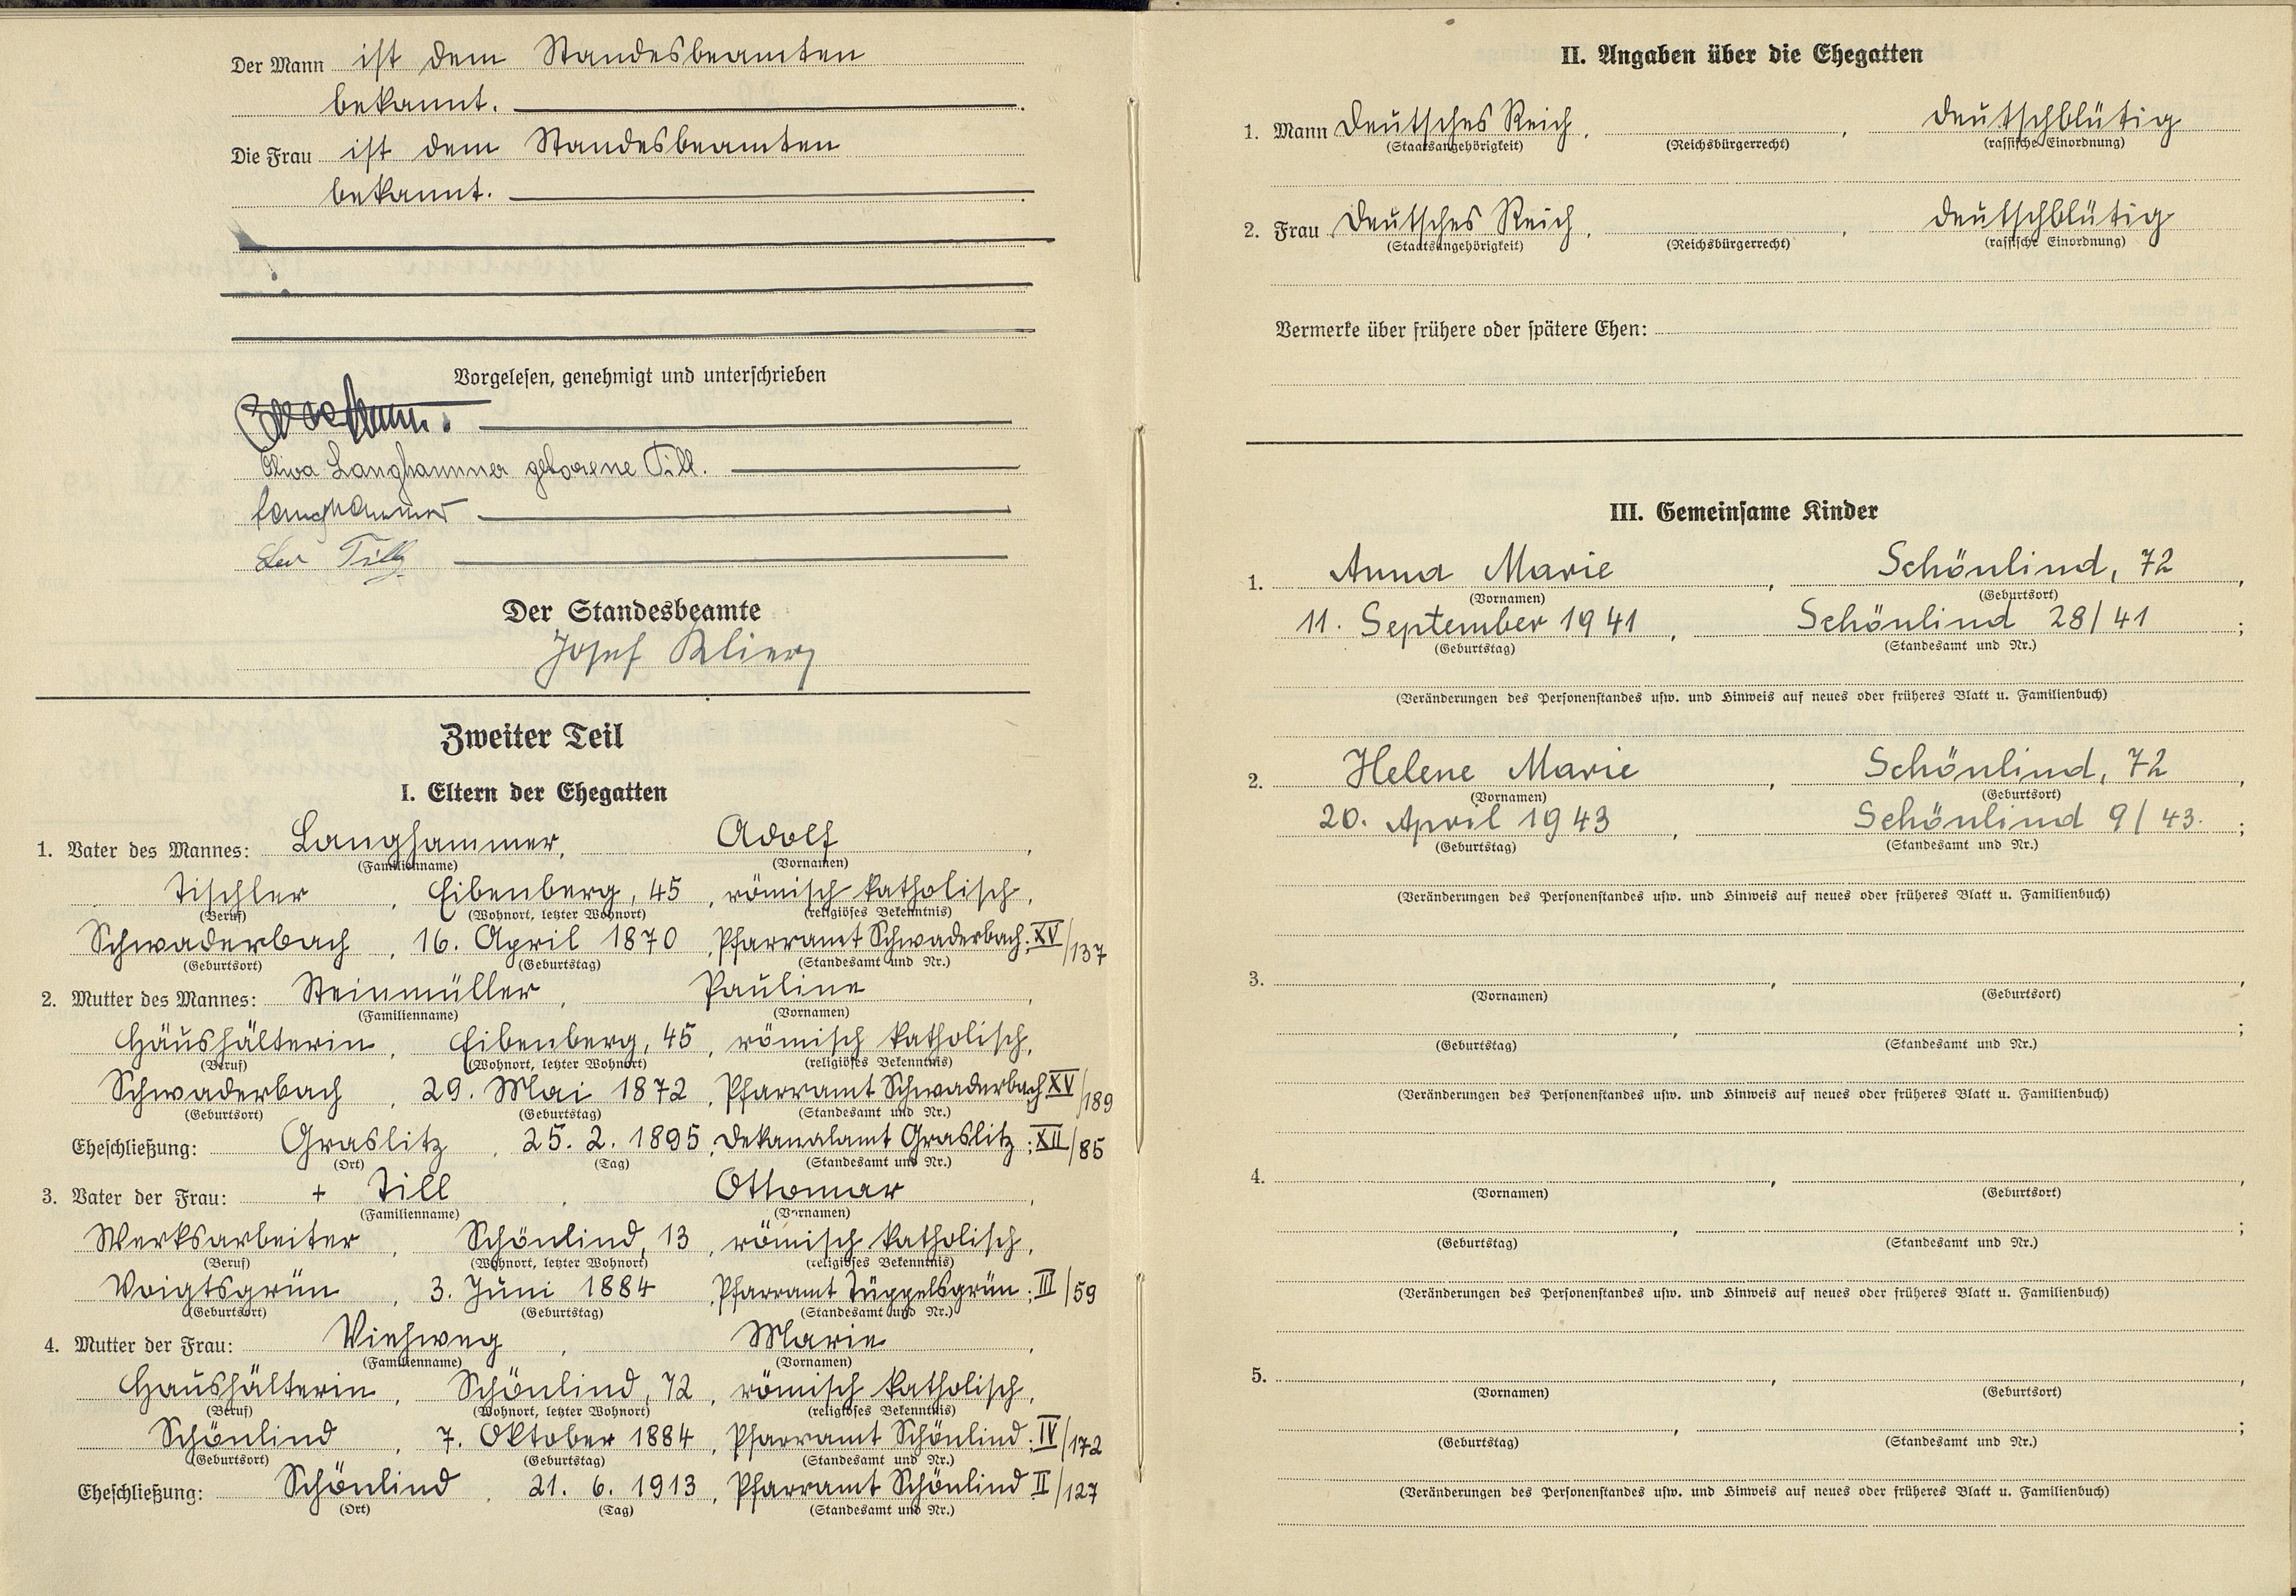 Der Mann ist dem Standesbeamten
bekannt.
Die Frau ist dem Standesbeamten
bekannt.
Vorgelesen, genehmigt und unterschrieben
Langhammer geborene Till.
Langhammer
Der Standesbeamte
Josef Klier
Zweiter Teil
I. Eltern der Ehegatten
1. Vater des Mannes: Langhammer, Adolf,
(Familienname) (Vornamen)
Tischler, Eibenberg, 45, römisch katholisch,
(Beruf) (Wohnort, letzter Wohnort) (religiöses Bekenntnis)
Schwaderbach, 16. April 1870, Pfarramt Schwaderbach: XV/137
(Geburtsort) (Geburtstag) (Standesamt und Nr.)
2. Mutter des Mannes: Steinmüller, Pauline,
(Familienname) (Vornamen)
Häushälterin, Eibenberg, 45, römisch katholisch,
(Beruf) (Wohnort, letzter Wohnort) (religiöses Bekenntnis)
Schwaderbach, 29. Mai 1872, Pfarramt Schwaderbach XV/189
(Geburtsort) (Geburtstag) (Standesamt und Nr.)
Eheschließung: Graslitz, 25. 2. 1895, Dekanalamt Graslitz: XII/85
(Ort) (Tag) (Standesamt und Nr.)
3. Vater der Frau: + Till, Ottomar,
(Familienname) (Vornamen)
Werksarbeiter, Schönlind, 13, römisch katholisch,
(Beruf) (Wohnort, letzter Wohnort) (religiöses Bekenntnis)
Voigtsgrün, 3. Juni 1884, Pfarramt Tüppelsgrün: III/59
(Geburtsort) (Geburtstag) (Standesamt und Nr.)
4. Mutter der Frau: Viehweg, Marie,
(Familienname) (Vornamen)
Haushälterin, Schönlind, 72, römisch katholisch,
(Beruf) (Wohnort, letzter Wohnort) (religiöses Bekenntnis)
Schönlind, 7. Oktober 1884, Pfarramt Schönlind: IV/172
(Geburtsort) (Geburtstag) (Standesamt und Nr.)
Eheschließung: Schönlind, 21. 6. 1913, Pfarramt Schönlind II/127
(Ort) (Tag) (Standesamt und Nr.)
II. Angaben über die Ehegatten
1. Mann Deutsches Reich, , deutschblütig
(Staatsangehörigkeit) (Reichsbürgerrecht) (rassische Einordnung)
2. Frau Deutsches Reich, , deutschblütig
(Staatsangehörigkeit) (Reichsbürgerrecht) (rassische Einordnung)
Vermerke über frühere oder spätere Ehen:
III. Gemeinsame Kinder
1. Anna Marie, Schönlind, 72,
(Vornamen) (Geburtsort)
11. September 1941, Schönlind 28/41;
(Geburtstag) (Standesamt und Nr.)
(Veränderungen des Personenstandes usw. und Hinweis auf neues oder früheres Blatt u. Familienbuch)
2. Helene Marie, Schönlind, 72,
(Vornamen) (Geburtsort)
20. April 1943, Schönlind 9/43.;
(Geburtstag) (Standesamt und Nr.)
(Veränderungen des Personenstandes usw. und Hinweis auf neues oder früheres Blatt u. Familienbuch)
3. , ,
(Vornamen) (Geburtsort)
, ;
(Geburtstag) (Standesamt und Nr.)
(Veränderungen des Personenstandes usw. und Hinweis auf neues oder früheres Blatt u. Familienbuch)
4. , ,
(Vornamen) (Geburtsort)
, ;
(Geburtstag) (Standesamt und Nr.)
(Veränderungen des Personenstandes usw. und Hinweis auf neues oder früheres Blatt u. Familienbuch)
5. , ,
(Vornamen) (Geburtsort)
, ;
(Geburtstag) (Standesamt und Nr.)
(Veränderungen des Personenstandes usw. und Hinweis auf neues oder früheres Blatt u. Familienbuch)